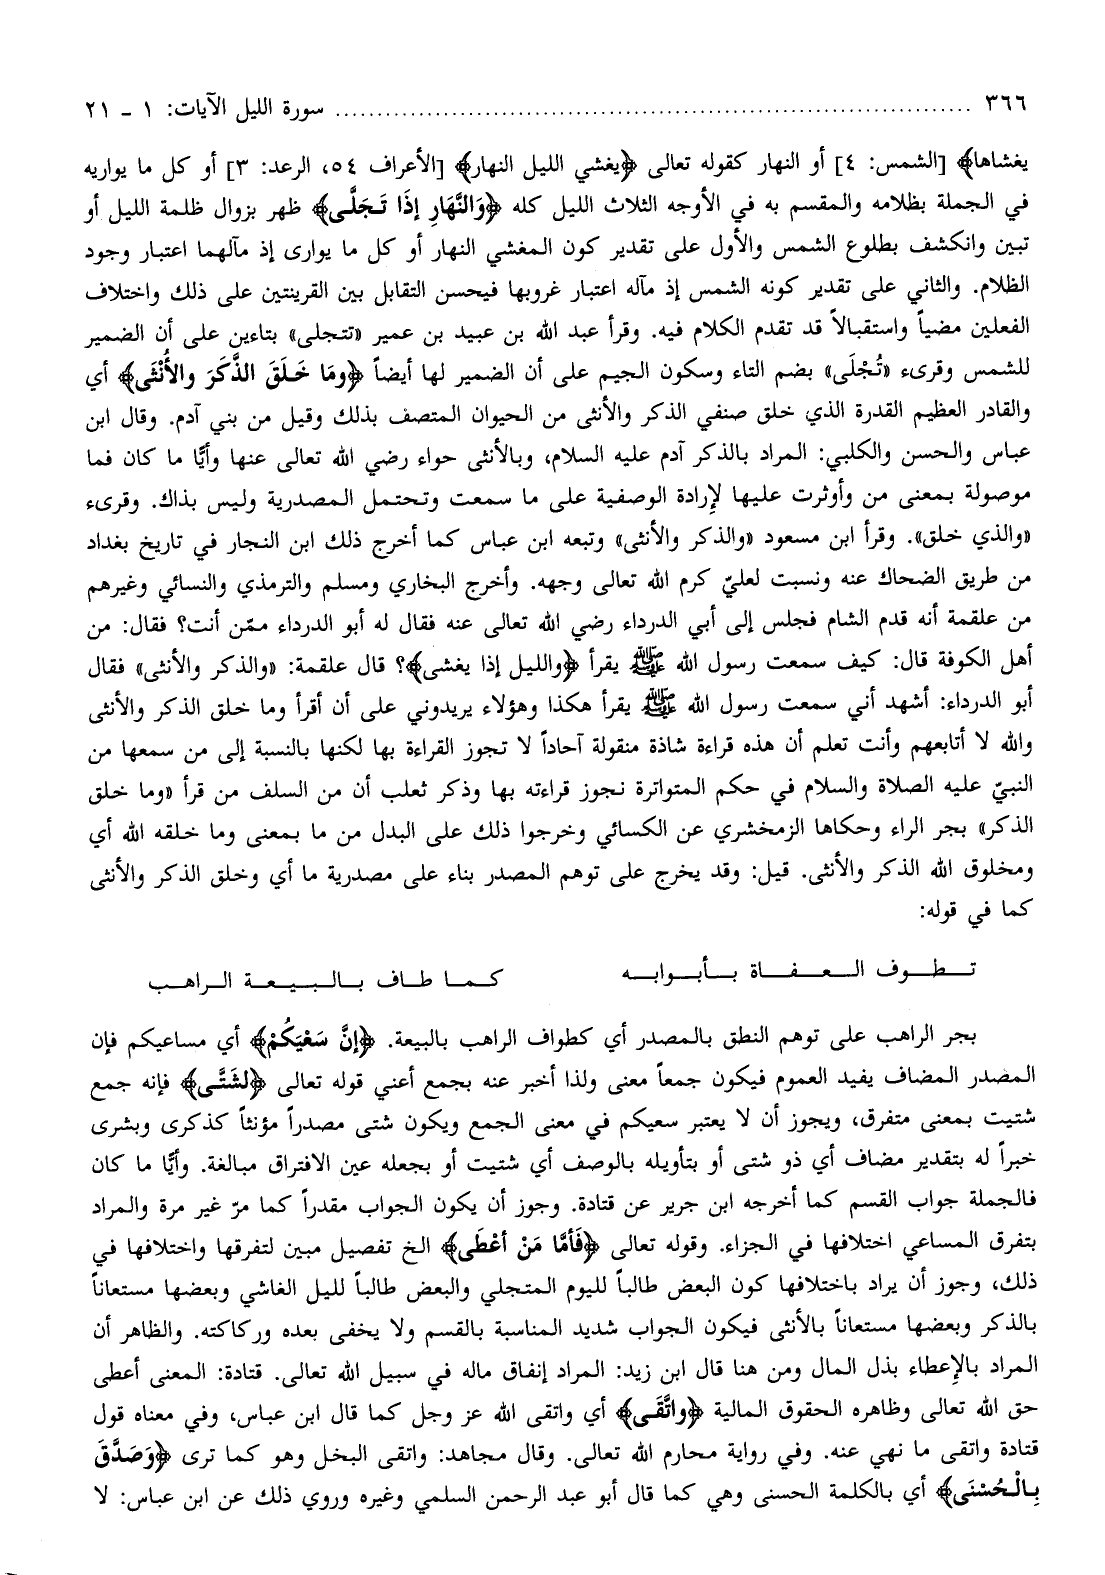 ٣٦٦ ........................................................................ سورة الليل الآيات: ١ ـ ٢١
يغشاها﴾ [الشمس: ٤] أو النهار كقوله تعالى ﴿يغشي الليل النهار﴾ [الأعراف ٥٤، الرعد: ٣] أو كل ما يواريه
في الجملة بظلامه والمقسم به في الأوجه الثلاث الليل كله ﴿وَالنَّهَارِ إِذَا تَجَلَّى﴾ ظهر بزوال ظلمة الليل أو
تبين وانكشف بطلوع الشمس والأول على تقدير كون المغشي النهار أو كل ما يوارى إذ مآلهما اعتبار وجود
الظلام. والثاني على تقدير كونه الشمس إذ مآله اعتبار غروبها فيحسن التقابل بين القرينتين على ذلك واختلاف
الفعلين مضياً واستقبالاً قد تقدم الكلام فيه. وقرأ عبد الله بن عبيد بن عمير «تتجلى» بتاءين على أن الضمير
للشمس وقرىء «تُجْلَى» بضم التاء وسكون الجيم على أن الضمير لها أيضاً ﴿وما خَلَقَ الذَّكَرَ والأُنْثَى﴾ أي
والقادر العظيم القدرة الذي خلق صنفي الذكر والأنثى من الحيوان المتصف بذلك وقيل من بني آدم. وقال ابن
عباس والحسن والكلبي: المراد بالذكر آدم عليه السلام، وبالأنثى حواء رضي الله تعالى عنها وأيًّا ما كان فما
موصولة بمعنى من وأوثرت عليها لإِرادة الوصفية على ما سمعت وتحتمل المصدرية وليس بذاك. وقرىء
«والذي خلق». وقرأ ابن مسعود «والذكر والأنثى» وتبعه ابن عباس كما أخرج ذلك ابن النجار في تاريخ بغداد
من طريق الضحاك عنه ونسبت لعليّ كرم الله تعالى وجهه. وأخرج البخاري ومسلم والترمذي والنسائي وغيرهم
من علقمة أنه قدم الشام فجلس إلى أبي الدرداء رضي الله تعالى عنه فقال له أبو الدرداء ممّن أنت؟ فقال: من
أهل الكوفة قال: كيف سمعت رسول الله ﷺ يقرأ ﴿والليل إذا يغشى﴾؟ قال علقمة: «والذكر والأنثى» فقال
أبو الدرداء: أشهد أني سمعت رسول الله ﷺ يقرأ هكذا وهؤلاء يريدوني على أن أقرأ وما خلق الذكر والأنثى
والله لا أتابعهم وأنت تعلم أن هذه قراءة شاذة منقولة آحاداً لا تجوز القراءة بها لكنها بالنسبة إلى من سمعها من
النبيّ عليه الصلاة والسلام في حكم المتواترة نجوز قراءته بها وذكر ثعلب أن من السلف من قرأ «وما خلق
الذكر» بجر الراء وحكاها الزمخشري عن الكسائي وخرجوا ذلك على البدل من ما بمعنى وما خلقه الله أي
ومخلوق الله الذكر والأنثى. قيل: وقد يخرج على توهم المصدر بناء على مصدرية ما أي وخلق الذكر والأنثى
كما في قوله:
تطوف العفاة بأبوابه كما طاف بالبيعة الراهب
بجر الراهب على توهم النطق بالمصدر أي كطواف الراهب بالبيعة. ﴿إنَّ سَعْيَكُمْ﴾ أي مساعيكم فإن
المصدر المضاف يفيد العموم فيكون جمعاً معنى ولذا أخبر عنه بجمع أعني قوله تعالى ﴿لَشَتَّى﴾ فإنه جمع
شتيت بمعنى متفرق، ويجوز أن لا يعتبر سعيكم في معنى الجمع ويكون شتى مصدراً مؤنثاً كذكرى وبشرى
خبراً له بتقدير مضاف أي ذو شتى أو بتأويله بالوصف أي شتيت أو بجعله عين الافتراق مبالغة. وأيًّا ما كان
فالجملة جواب القسم كما أخرجه ابن جرير عن قتادة. وجوز أن يكون الجواب مقدراً كما مرّ غير مرة والمراد
بتفرق المساعي اختلافها في الجزاء. وقوله تعالى ﴿فَأمَّا مَنْ أعْطَى﴾ الخ تفصيل مبين لتفرقها واختلافها في
ذلك، وجوز أن يراد باختلافها كون البعض طالباً لليوم المتجلي والبعض طالباً لليل الغاشي وبعضها مستعاناً
بالذكر وبعضها مستعاناً بالأنثى فيكون الجواب شديد المناسبة بالقسم ولا يخفى بعده وركاكته. والظاهر أن
المراد بالإِعطاء بذل المال ومن هنا قال ابن زيد: المراد إنفاق ماله في سبيل الله تعالى. قتادة: المعنى أعطى
حق الله تعالى وظاهره الحقوق المالية ﴿واتَّقَى﴾ أي واتقى الله عز وجل كما قال ابن عباس، وفي معناه قول
قتادة واتقى ما نهي عنه. وفي رواية محارم الله تعالى. وقال مجاهد: واتقى البخل وهو كما ترى ﴿وَصَدَّقَ
بِالْحُسْنَى﴾ أي بالكلمة الحسنى وهي كما قال أبو عبد الرحمن السلمي وغيره وروي ذلك عن ابن عباس: لا